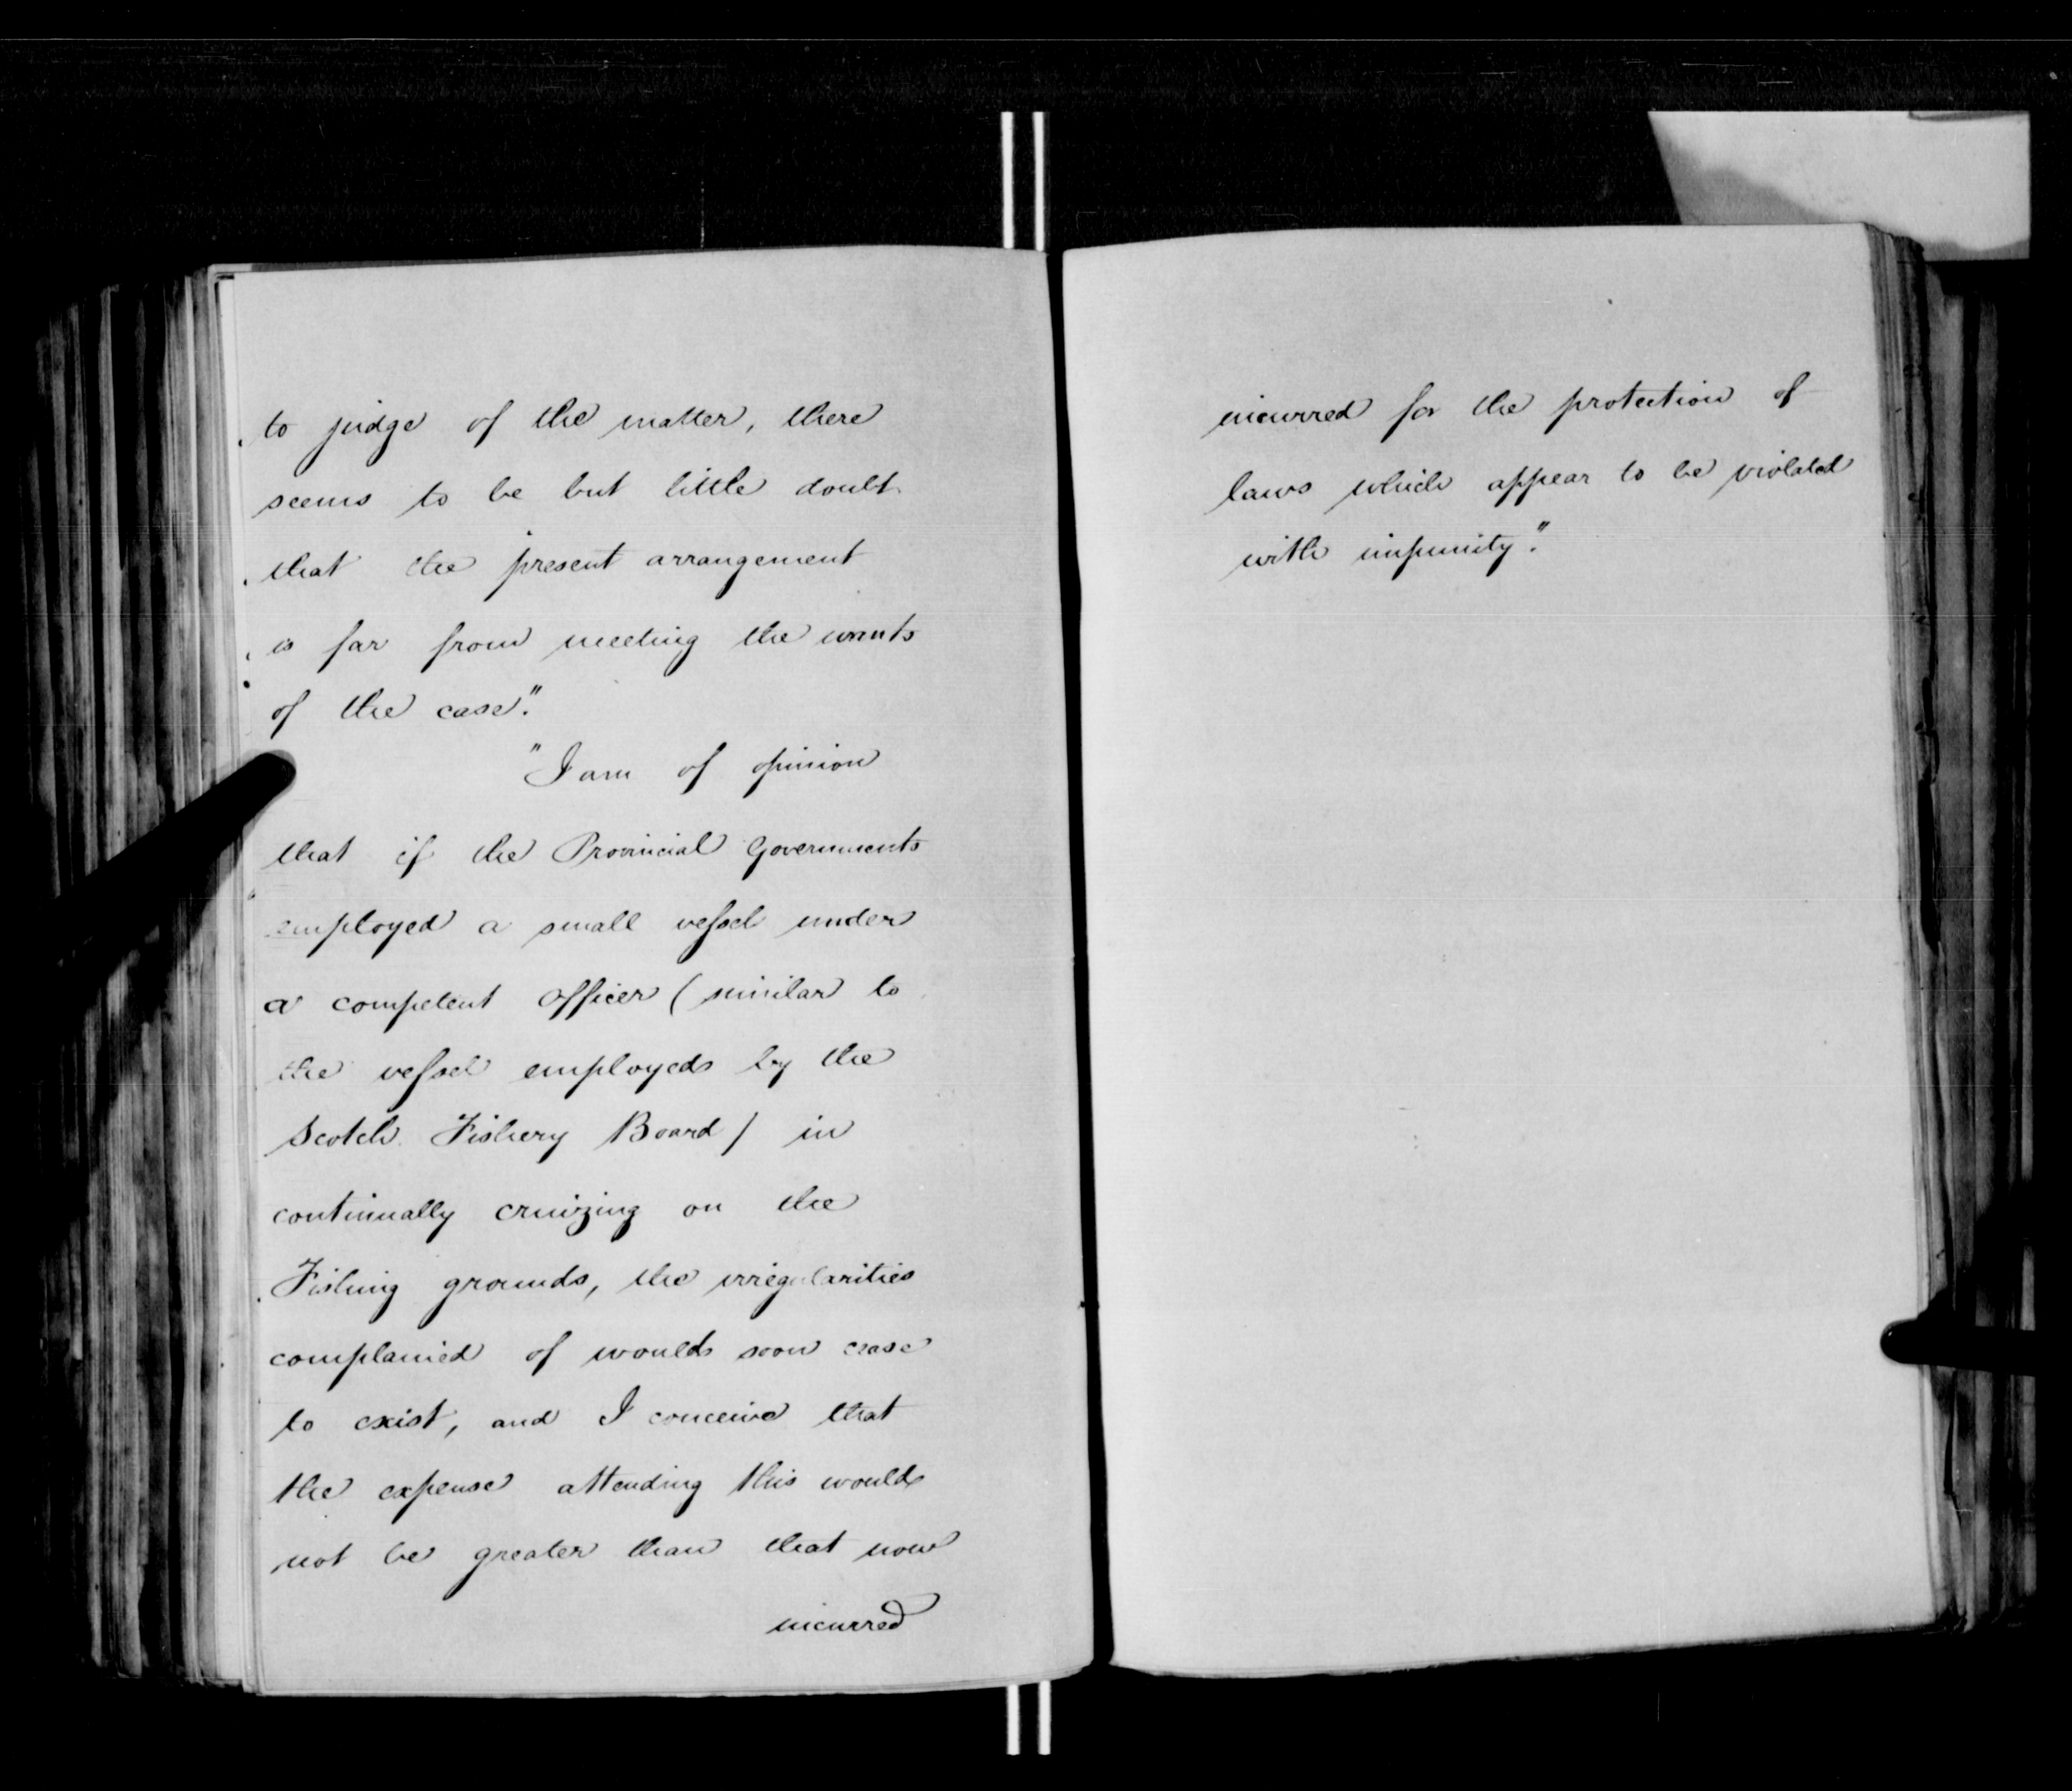 to judge of the matter, there
seems to be but little doubt
that the present arrangement
is far from meeting the wants
of the case."
"I am of opinion
that if the Provincial Governments
employed a small vessel under
a competent officer (similar to
the vessel employed by the
Scotch Fishery Board) in
continually cruizing on the
Fishing grounds, the irregularities
complained of would soon cease
to exist, and I conceive that
the expense attending this would
not be greater than that now
incurred
incurred for the protection of
laws which appear to be violated
with impunity."